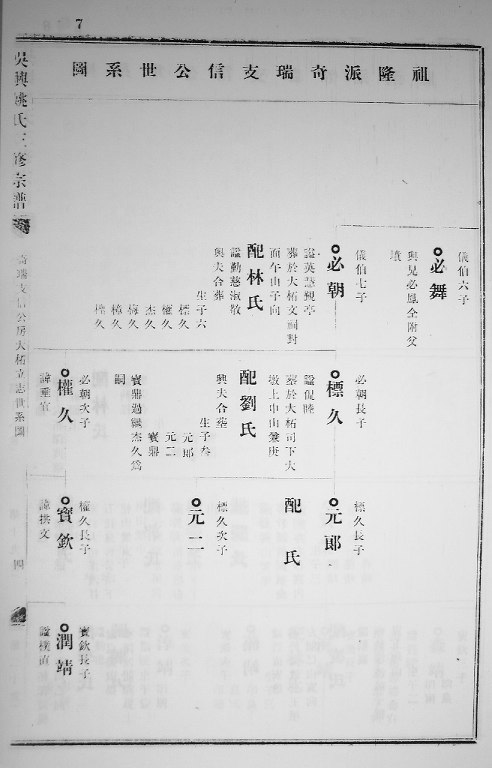 7
祖隆派奇瑞支信公世系圖
吳興姚氏三修宗譜
奇瑞支信公房大柘立志世系圖
四
儀伯六子
必舞
與兄必鳳仝附父
墳
儀伯七子
必朝
諡英慧觀亭
葬於大柘文祠對
面午山子向
配林氏
諡勤慈淑敬
與夫合葬
生子六
標久
權久
杰久
梅久
樟久
檀久
必朝長子
標久
諡侃睦
墓於大柘司下大
墩上申山兼庚
配劉氏
與夫合葬
生子叁
元郎
元二
寶鼎
寶鼎過繼杰久為
嗣
必朝次子
權久
諱重官
標久長子
元郎
配 氏
標久次子
元二
權久長子
寶欽
諱拱文
寶欽長子
潤靖
諡樸直